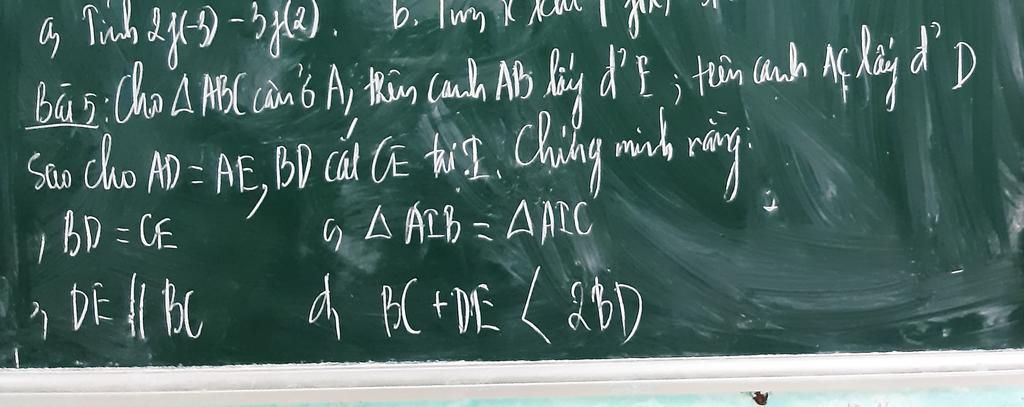 a, Tính 2f(-3) - 3f(2). b. Tìm x
Bài 5: Cho △ ABC cân ở A, trên cạnh AB lấy đ' E; trên cạnh AC lấy đ' D
Sao cho AD = AE, BD cắt CE tại I. Chứng minh rằng:
, BD = CE c, △ AIB = △AIC
, DE // BC d, BC + DE < 2BD